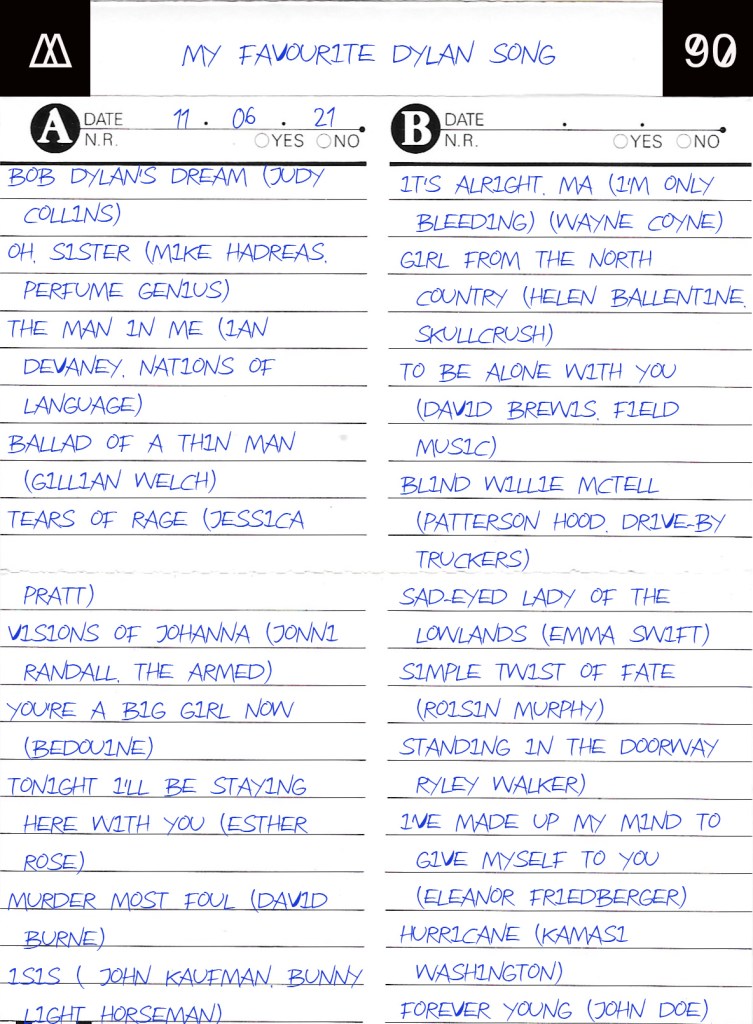 M
MY FAVOURITE DYLAN SONG
90
A DATE 11 . 06 . 21
N.R. YES NO
BOB DYLAN'S DREAM (JUDY
COLLINS)
OH, SISTER (MIKE HADREAS,
PERFUME GENIUS)
THE MAN IN ME (IAN
DEVANEY, NATIONS OF
LANGUAGE)
BALLAD OF A THIN MAN
(GILLIAN WELCH)
TEARS OF RAGE (JESSICA
PRATT)
VISIONS OF JOHANNA (JONNI
RANDALL, THE ARMED)
YOU'RE A BIG GIRL NOW
(BEDOUINE)
TONIGHT I'LL BE STAYING
HERE WITH YOU (ESTHER
ROSE)
MURDER MOST FOUL (DAVID
BURNE)
ISIS ( JOHN KAUFMAN, BUNNY
LIGHT HORSEMAN)
B DATE . .
N.R. YES NO
IT'S ALRIGHT, MA (I'M ONLY
BLEEDING) (WAYNE COYNE)
GIRL FROM THE NORTH
COUNTRY (HELEN BALLENTINE,
SKULLCRUSH)
TO BE ALONE WITH YOU
(DAVID BREWIS, FIELD
MUSIC)
BLIND WILLIE MCTELL
(PATTERSON HOOD, DRIVE-BY
TRUCKERS)
SAD-EYED LADY OF THE
LOWLANDS (EMMA SWIFT)
SIMPLE TWIST OF FATE
(ROISIN MURPHY)
STANDING IN THE DOORWAY
RYLEY WALKER)
I'VE MADE UP MY MIND TO
GIVE MYSELF TO YOU
(ELEANOR FRIEDBERGER)
HURRICANE (KAMASI
WASHINGTON)
FOREVER YOUNG (JOHN DOE)